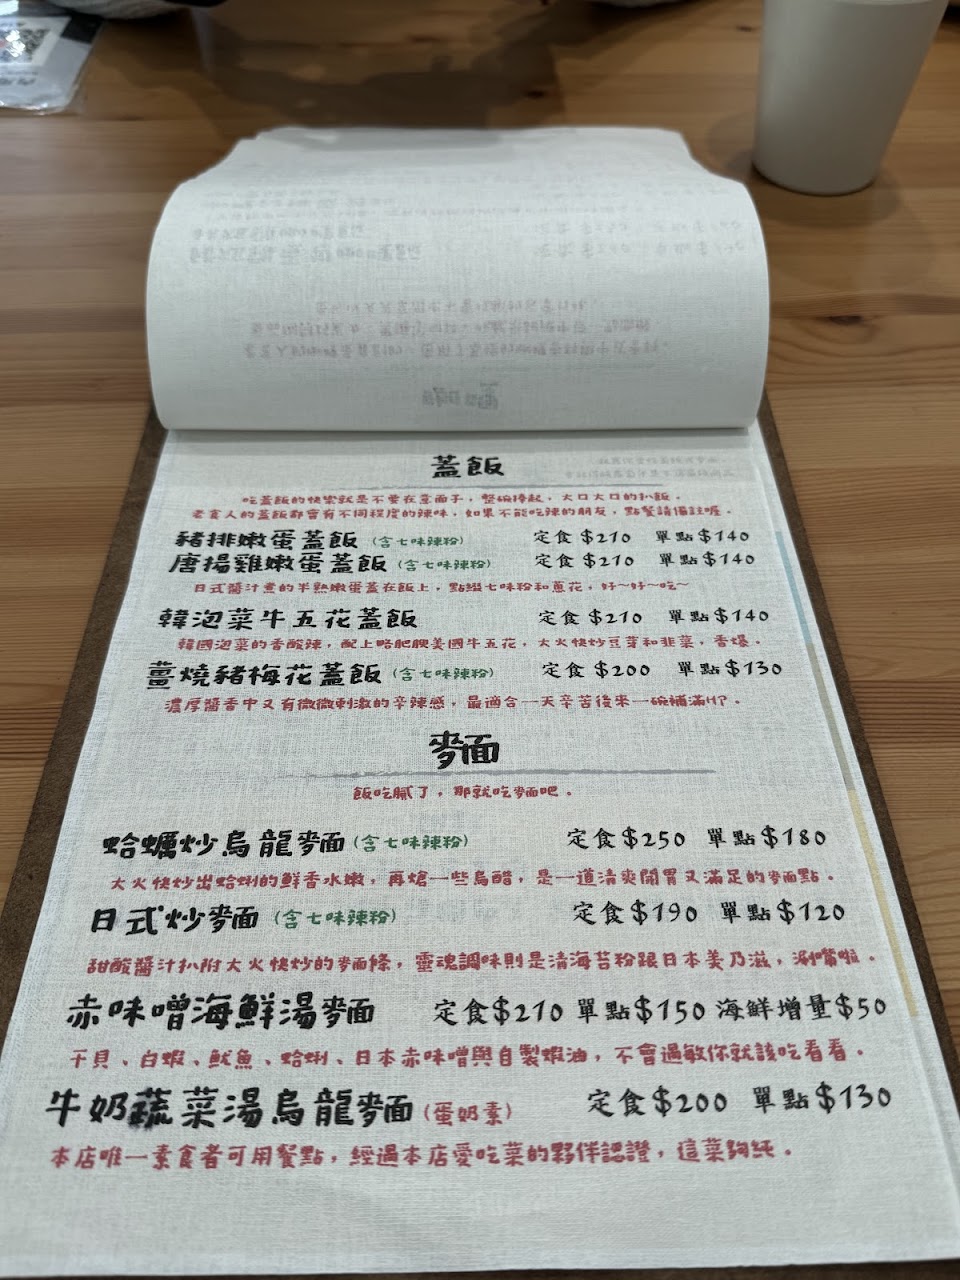 蓋飯
吃蓋飯的快樂就是不要在意面子，整碗捧起，大口大口的扒飯。
老食人的蓋飯都會有不同程度的辣味，如果不能吃辣的朋友，點餐請備註喔。
豬排嫩蛋蓋飯（含七味辣粉） 定食$210 單點$140
唐揚雞嫩蛋蓋飯（含七味辣粉） 定食$210 單點$140
日式醬汁煮的半熟嫩蛋蓋在飯上，點綴七味粉和蔥花，好~好~吃~
韓泡菜牛五花蓋飯 定食$210 單點$140
韓國泡菜的香酸辣，配上略肥腴美國牛五花，大火快炒豆芽和韭菜，香爆。
薑燒豬梅花蓋飯（含七味辣粉） 定食$200 單點$130
濃厚醬香中又有微微刺激的辛辣感，最適合一天辛苦後來一碗補滿HP。
麥面
飯吃膩了，那就吃麥面吧。
蛤蠣炒烏龍麥面（含七味辣粉） 定食$250 單點$180
大火快炒出蛤蜊的鮮香水嫩，再熗一些烏醋，是一道清爽開胃又滿足的麥面點。
日式炒麥面（含七味辣粉） 定食$190 單點$120
甜酸醬汁扒附大火快炒的麥面條，靈魂調味則是清海苔粉跟日本美乃滋，涮嘴啦。
赤味噌海鮮湯麥面 定食$210 單點$150 海鮮增量$50
干貝、白蝦、魷魚、蛤蜊、日本赤味噌與自製蝦油，不會過敏你就該吃看看。
牛奶蔬菜湯烏龍麥面（蛋奶素） 定食$200 單點$130
本店唯一素食者可用餐點，經過本店愛吃菜的夥伴認證，這菜夠純。